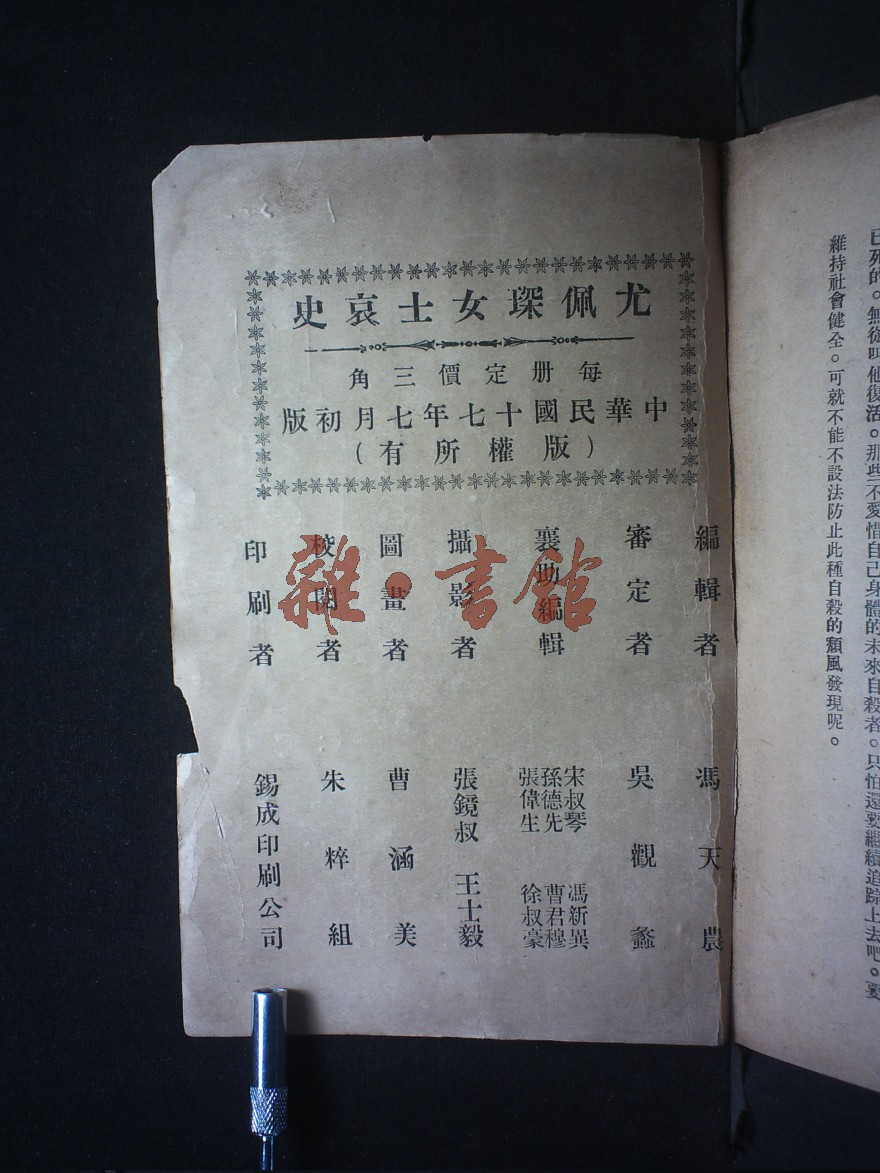 已死的。無從叫他復活。那些不愛惜自己身體的未來自殺者。只怕還要繼續追踪上去吧。要
維持社會健全。可就不能不設法防止此種自殺的頹風發現呢。
尤佩琛女士哀史
每册定價三角
中華民國十七年七月初版
(版權所有)
編輯者 馮天農
審定者 吳觀蠡
襄助編輯 宋叔琴 馮新異
孫德先 曹君穆
張偉生 徐叔豪
攝影者 張鏡叔 王士毅
圖畫者 曹涵美
校閱者 朱粹組
印刷者 錫成印刷公司
雜·書館